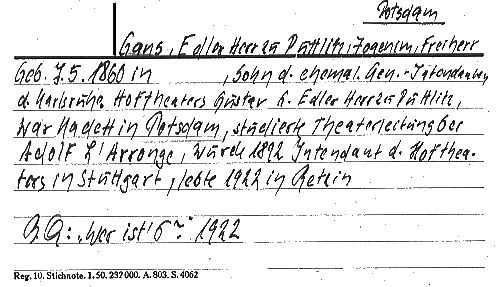 Potsdam
Gans, Edler Herr zu Puttlitz, Joachim, Freiherr
Geb. 7.5.1860 in , Sohn d. ehemal. Gen.-Intendanten
d. Karlsruhe Hoftheaters Gustav h. Edler Herr zu Puttlitz,
War Kadett in Potsdam, studierte Theaterleitung bei
Adolf L'Arronge, wurde 1892 Intendant d. Hofthea-
ters in Stuttgart, lebte 1922 in Retzin
BQ: "Wer ist's" 1922
Reg. 10. Stichnote. I. 50. 232 000. A. 803. S. 4062